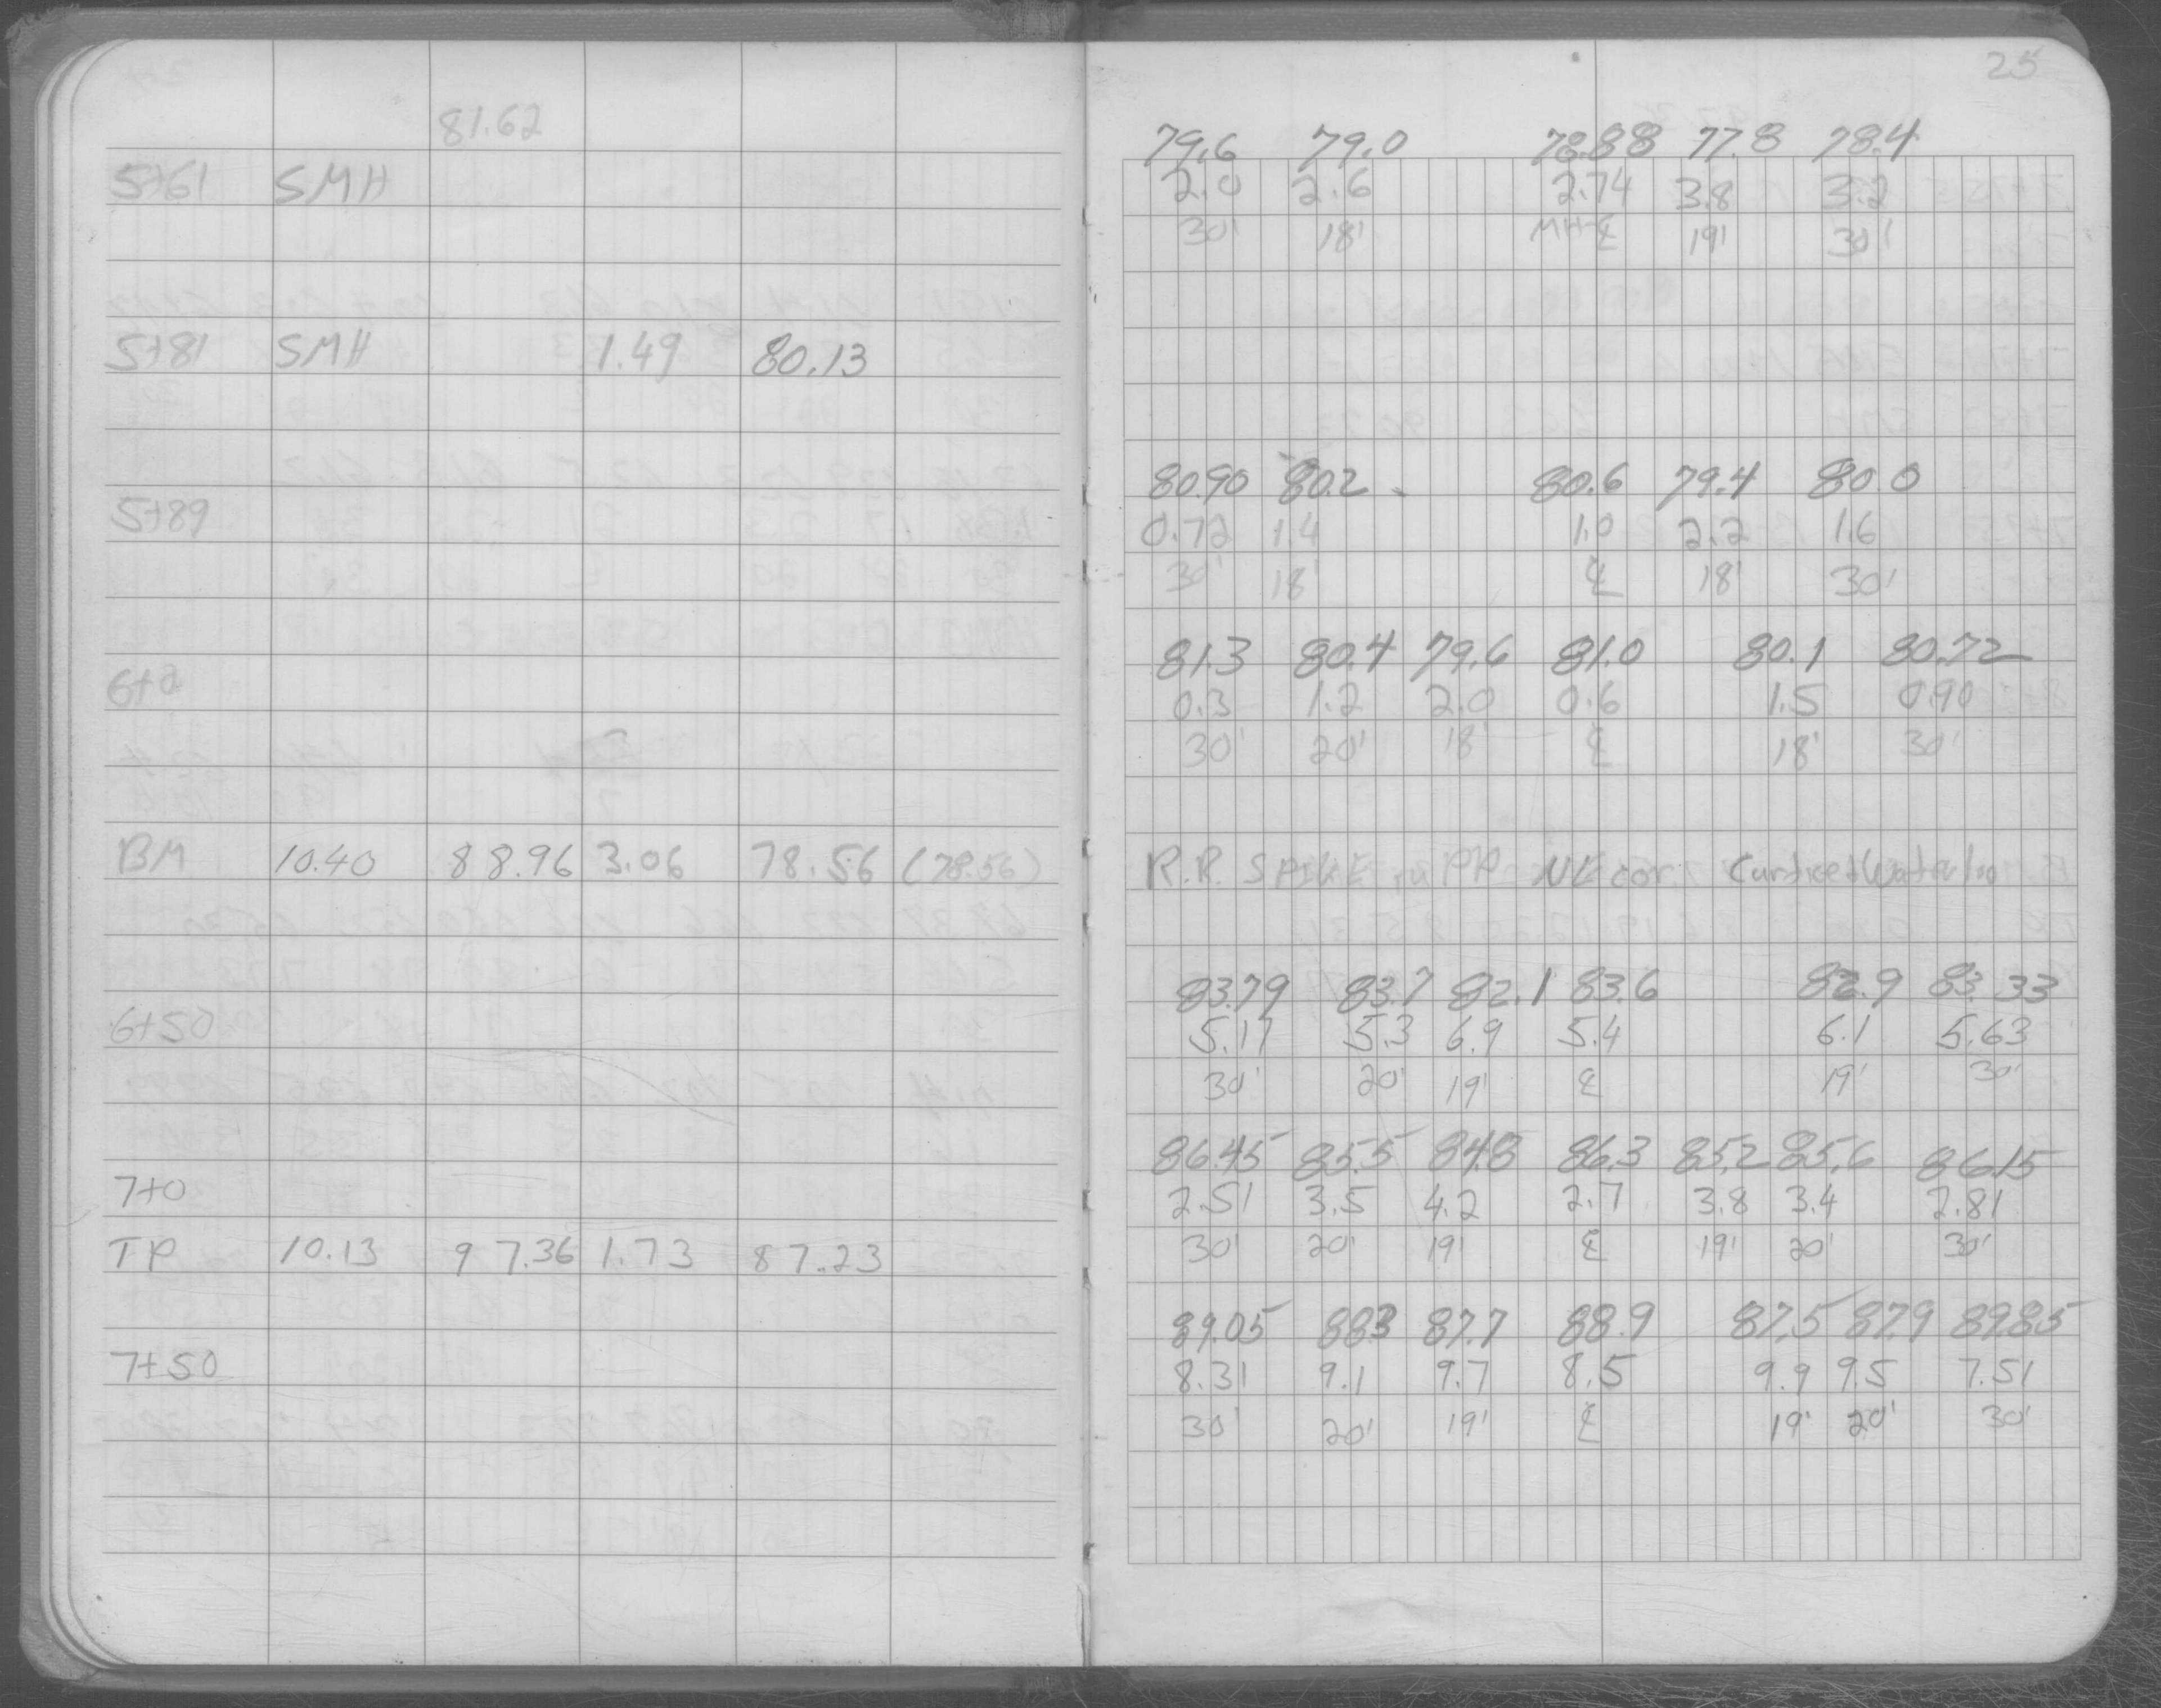 25
81.62
79.6 79.0 78.88 77.8 78.4
5+61 SMH 2.0 2.6 2.74 3.8 3.2
30' 18' MH ℄ 19' 30'
5+81 SMH 1.49 80.13
80.90 80.2 80.6 79.4 80.0
5+89 0.72 1.4 1.0 2.2 1.6
30' 18' ℄ 18' 30'
81.3 80.4 79.6 81.0 80.1 80.72
6+0 0.3 1.2 2.0 0.6 1.5 0.90
30' 20' 18' ℄ 18' 30'
BM 10.40 88.96 3.06 78.56 (78.56) R.R. SPIKE in PP NE cor. Curtice + Waterloo
83.79 83.7 82.1 83.6 82.9 83.33
6+50 5.17 5.3 6.9 5.4 6.1 5.63
30' 20' 19' ℄ 19' 30'
86.45 85.5 84.8 86.3 85.2 85.6 86.15
7+0 2.51 3.5 4.2 2.7 3.8 3.4 2.81
TP 10.13 97.36 1.73 87.23 30' 20' 19' ℄ 19' 20' 30'
89.05 88.3 87.7 88.9 87.5 87.9 89.85
7+50 8.31 9.1 9.7 8.5 9.9 9.5 7.51
30' 20' 19' ℄ 19' 20' 30'